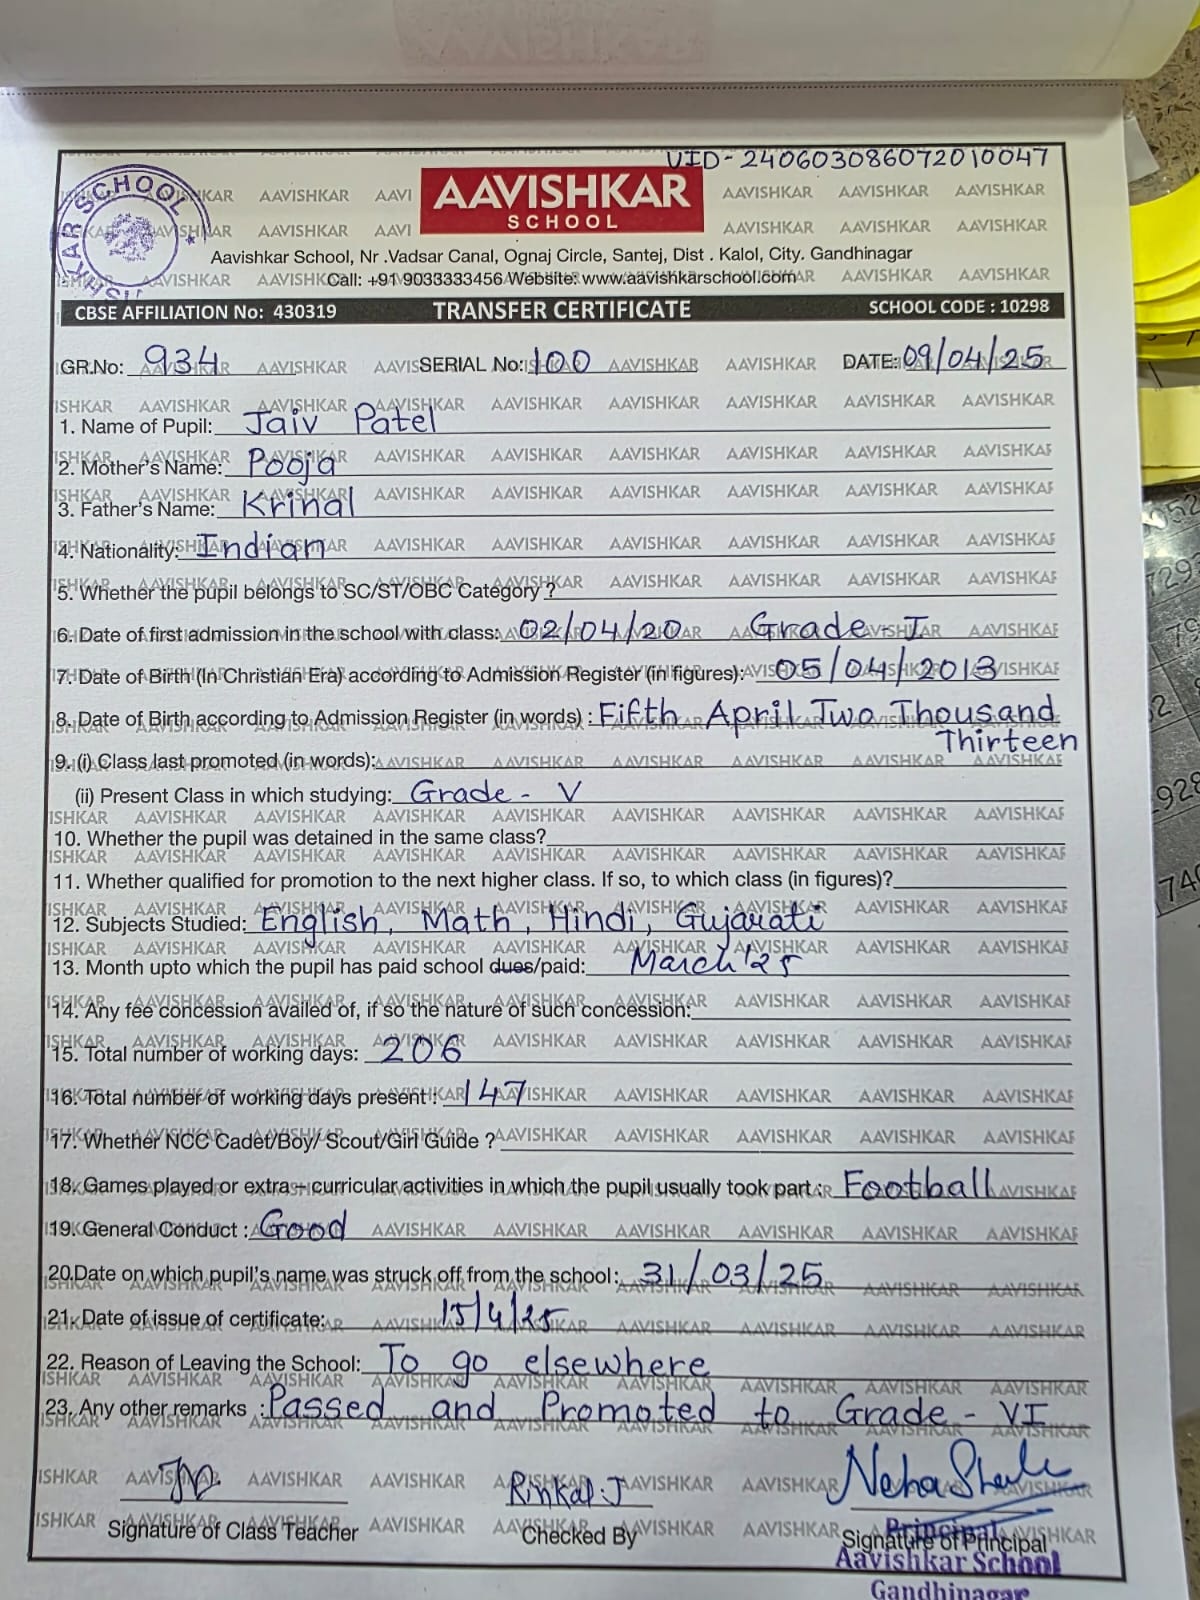 UID- 240603086072010047
AAVISHKAR
SCHOOL
Aavishkar School, Nr .Vadsar Canal, Ognaj Circle, Santej, Dist . Kalol, City. Gandhinagar
Call: +91 9033333456 Website: www.aavishkarschool.com
CBSE AFFILIATION No: 430319 TRANSFER CERTIFICATE SCHOOL CODE : 10298
GR.No: 934 SERIAL No: 100 DATE: 09/04/25
1. Name of Pupil: Jaiv Patel
2. Mother's Name: Pooja
3. Father's Name: Krinal
4. Nationality: Indian
5. Whether the pupil belongs to SC/ST/OBC Category ?
6. Date of first admission in the school with class: 02/04/20 Grade - I
7. Date of Birth (In Christian Era) according to Admission Register (in figures): 05/04/2013
8. Date of Birth according to Admission Register (in words) : Fifth April Two Thousand
Thirteen
9. (i) Class last promoted (in words):
(ii) Present Class in which studying: Grade - V
10. Whether the pupil was detained in the same class?
11. Whether qualified for promotion to the next higher class. If so, to which class (in figures)?
12. Subjects Studied: English, Math, Hindi, Gujarati
13. Month upto which the pupil has paid school dues/paid: March'25
14. Any fee concession availed of, if so the nature of such concession:
15. Total number of working days: 206
16. Total number of working days present : 147
17. Whether NCC Cadet/Boy/ Scout/Girl Guide ?
18. Games played or extra – curricular activities in which the pupil usually took part : Football
19. General Conduct : Good
20.Date on which pupil's name was struck off from the school: 31/03/25
21. Date of issue of certificate: 15/4/25
22. Reason of Leaving the School: To go elsewhere
23. Any other remarks : Passed and Promoted to Grade - VI
Rinkal.J
Signature of Class Teacher Checked By Signature of Principal
Principal
Aavishkar School
Gandhinagar